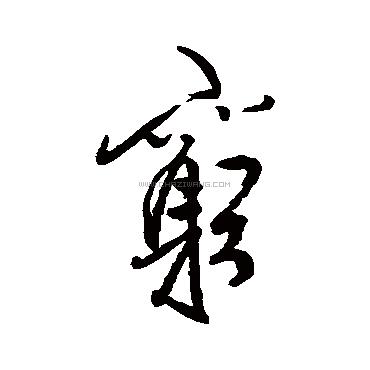 窮
WWW.SHAZIWANG.COM